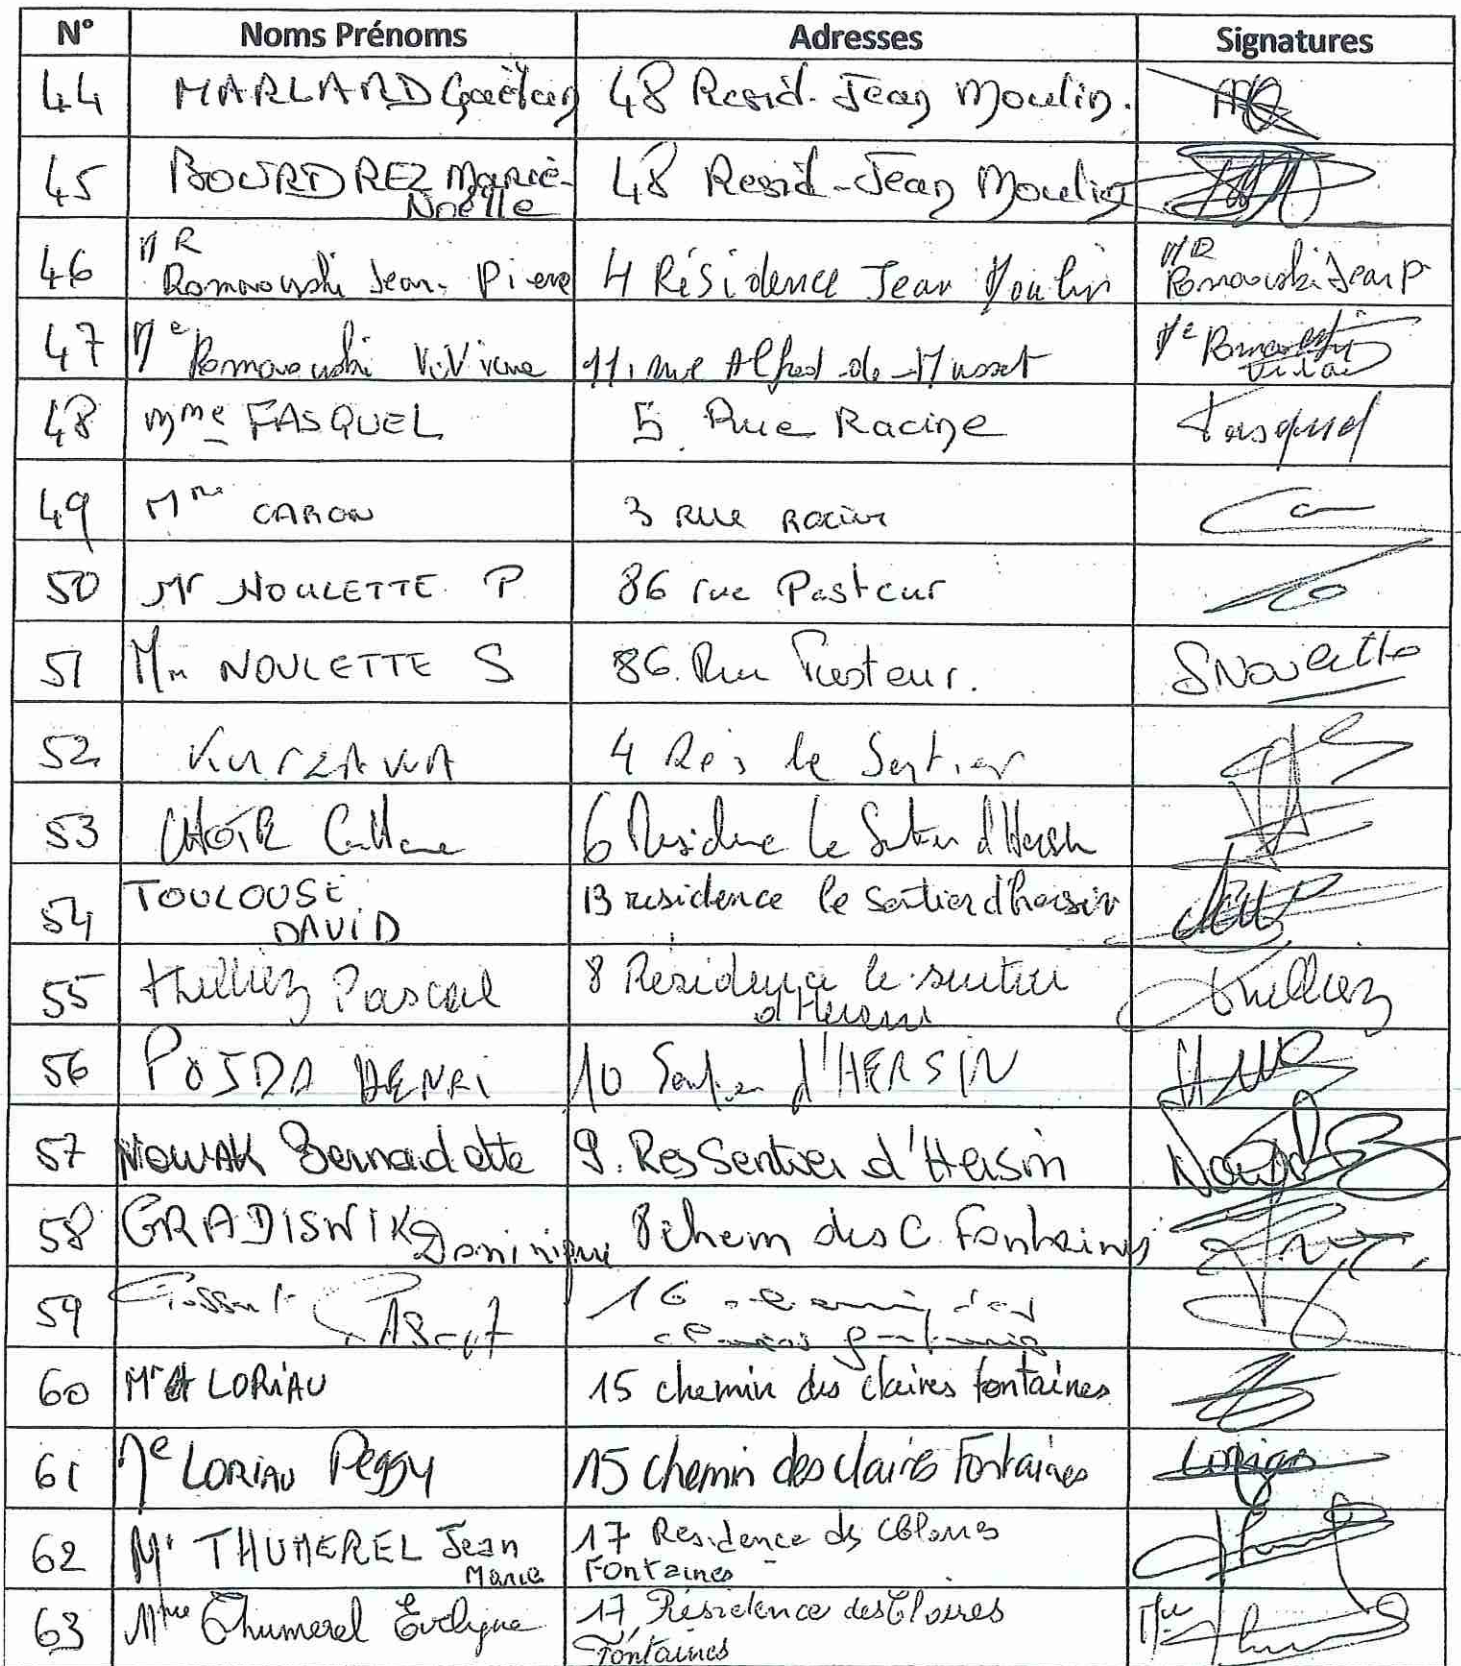 N° Noms Prénoms Adresses Signatures
44 MARLARD Gaëtan 48 Resid. Jean Moulin.
45 BOURDREZ Marie- 48 Resid-Jean Moulin
Noëlle
46 MR Romanowski Jean-Pierre 4 Résidence Jean Moulin MR Romanowski Jean P
47 Me Romanowski Viviane 11, rue Alfred-de-Musset Me Romanowski
48 Mme FASQUEL 5 Rue Racine Fasquel
49 Mme CARON 3 Rue Racine
50 Mr NOULETTE P 86 rue Pasteur
51 Mm NOULETTE S 86. Rue Pasteur. SNoulette
52 KURZAWA 4 Rés le Sentier
53 6 Residence le Sentier d'Hersin
54 TOULOUSE 13 residence le sentier d'hersin
DAVID
55 thelliez Pascal 8 Résidence le sentier thelliez
d'Hersin
56 POJDA HENRI 10 Sentier d'HERSIN
57 NOWAK Bernadette 9. Res Sentier d'Hersin Nowak
58 GRADISNIK Dominique 8 chem des C. Fontaines
59 16 chemin des
claires fontaines
60 Mr LORIAU 15 chemin des claires fontaines
61 Me LORIAU Peggy 15 chemin des claires Fontaines Loriau
62 Mr THUMEREL Jean 17 Residence des Claires
Marie Fontaines
63 Mme Thumerel Evelyne 17 Résidence des Claires
Fontaines